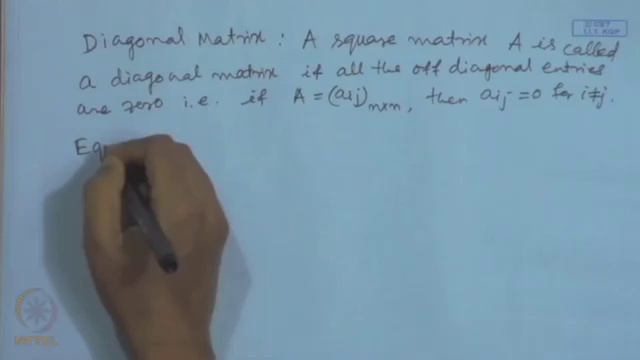 © CET
I.I.T. KGP
Diagonal Matrix : A square matrix A is called
a diagonal matrix if all the off diagonal entries
are zero i.e. if A = (aij)n×n, then aij = 0 for i≠j.
Eq
NPTEL